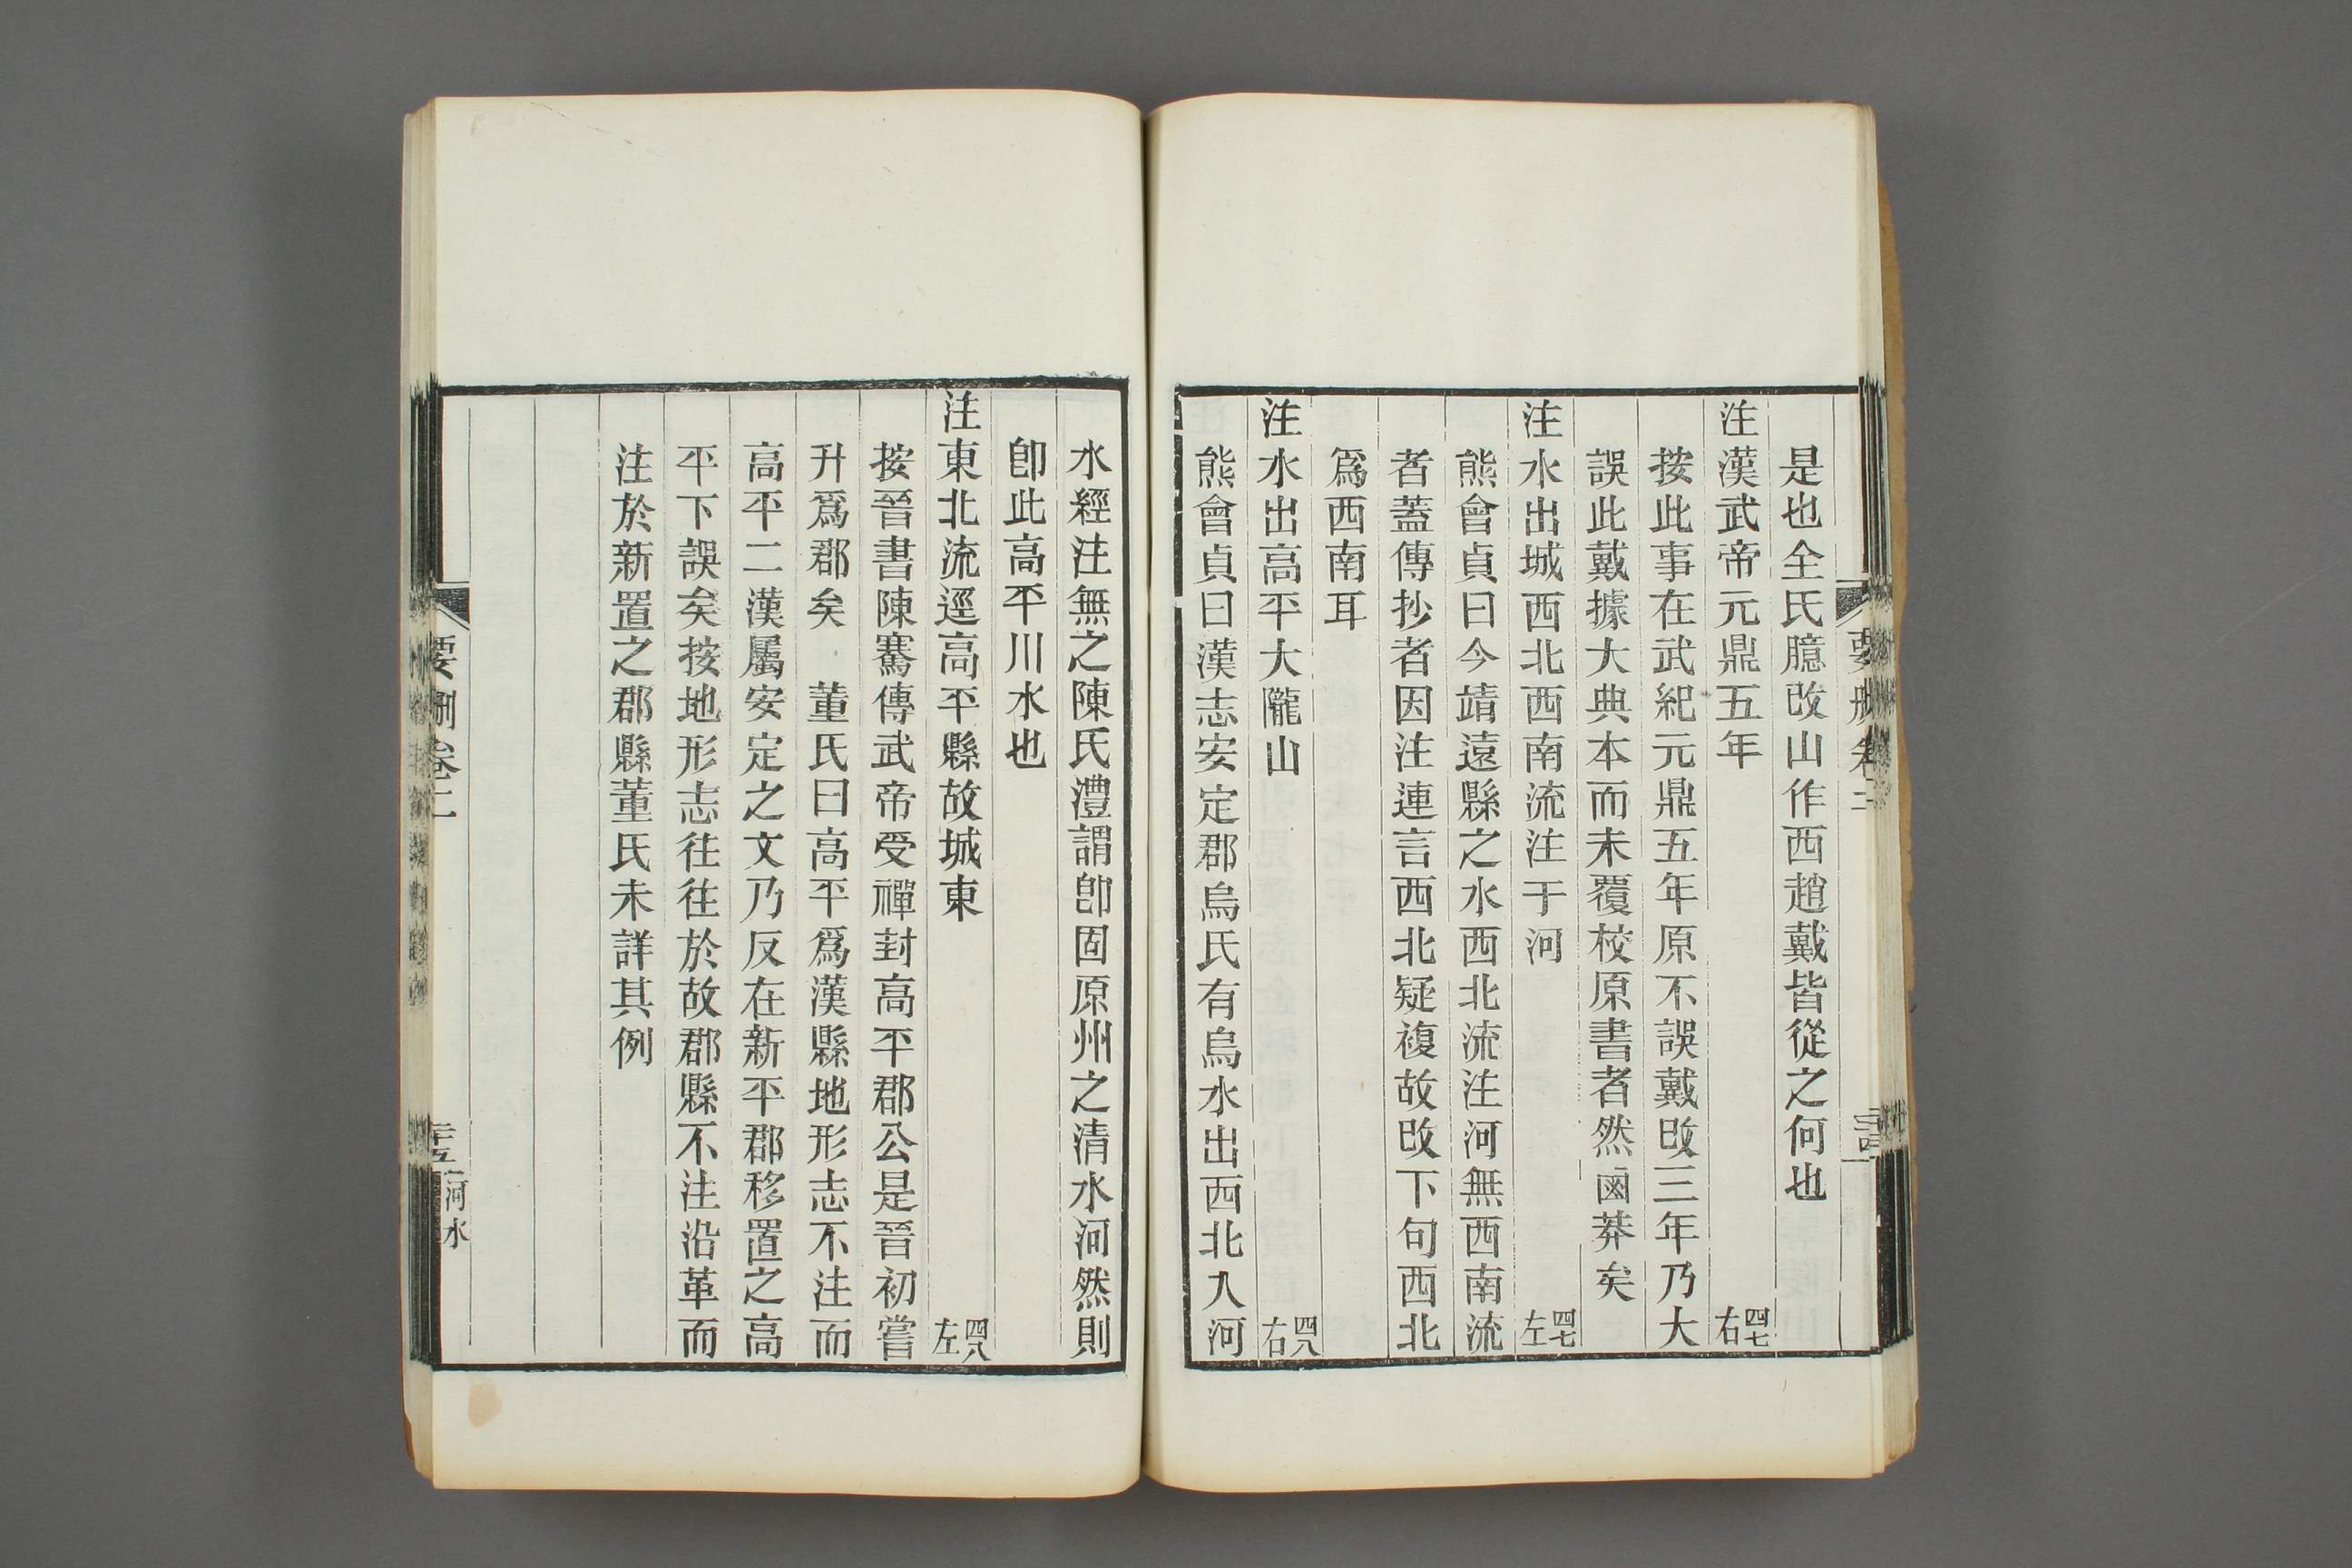 是也全氏臆改山作西趙戴皆從之何也
注漢武帝元鼎五年 四七右
按此事在武紀元鼎五年原不誤戴改三年乃大
誤此戴據大典本而未覆校原書者然鹵莽矣
注水出城西北西南流注于河 四七左
熊會貞曰今靖遠縣之水西北流注河無西南流
者蓋傳抄者因注連言西北疑複故改下句西北
爲西南耳
注水出高平大隴山 四八右
熊會貞曰漢志安定郡烏氏有烏水出西北入河
水經注無之陳氏澧謂卽固原州之清水河然則
卽此高平川水也
注東北流逕高平縣故城東 四八左
按晉書陳騫傳武帝受禪封高平郡公是晉初嘗
升爲郡矣 董氏曰高平爲漢縣地形志不注而
高平二漢屬安定之文乃反在新平郡移置之高
平下誤矣按地形志往往於故郡縣不注沿革而
注於新置之郡縣董氏未詳其例
要刪卷二
三五
河水